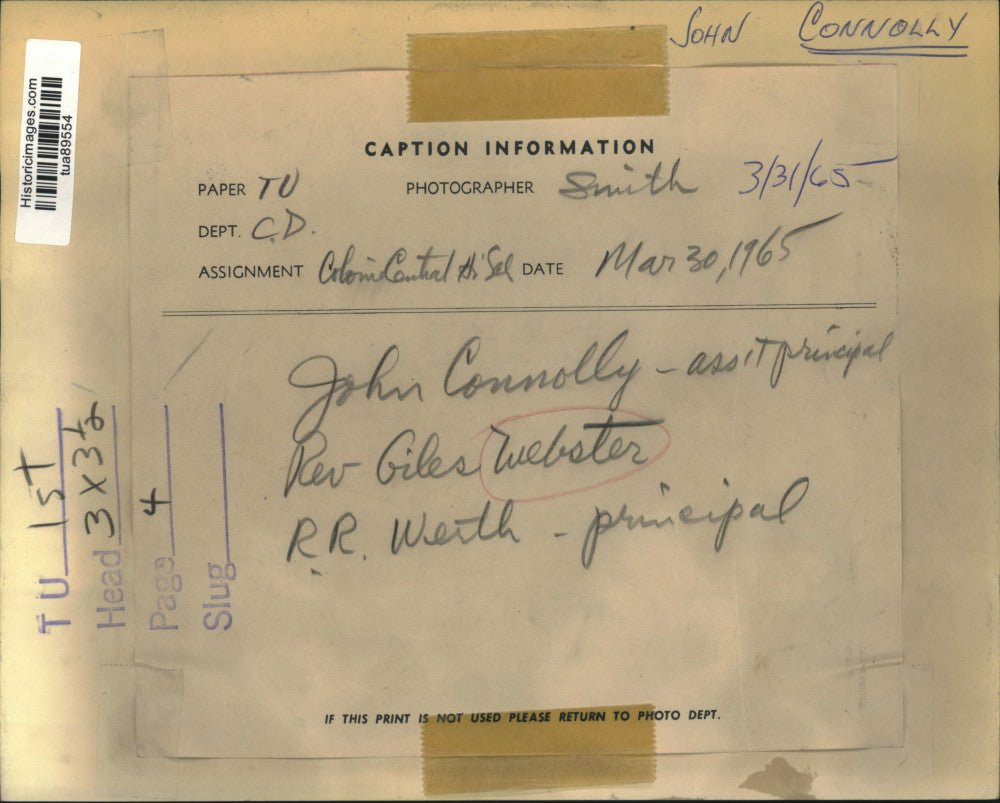 JOHN CONNOLLY
Historicimages.com
tua89554
CAPTION INFORMATION
PAPER TU PHOTOGRAPHER Smith 3/31/65
DEPT. C.D.
ASSIGNMENT Colonie Central Hi Scl DATE Mar 30, 1965
John Connolly - ass't principal
Rev Giles Webster
R.R. Werth - principal
TU 1st
Head 3 x 3 1/2
Page 4
Slug
IF THIS PRINT IS NOT USED PLEASE RETURN TO PHOTO DEPT.